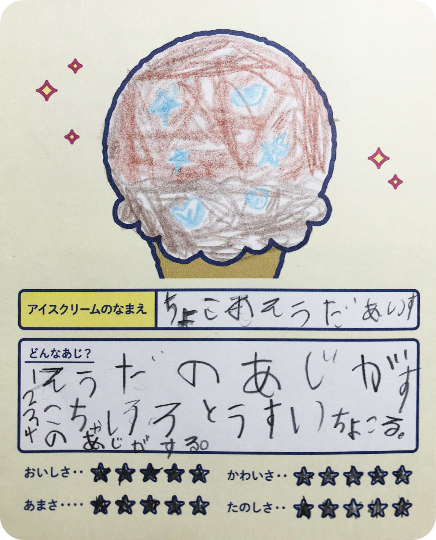 アイスクリームのなまえ
ちょこおそうだあいす
どんなあじ?
1そうだのあじがす
2
3こちゃいろとうすいちょこる。
4のあじがする。
おいしさ‥★★★★★ かわいさ‥★★★★★
あまさ‥‥★★★★★ たのしさ‥★★★★★